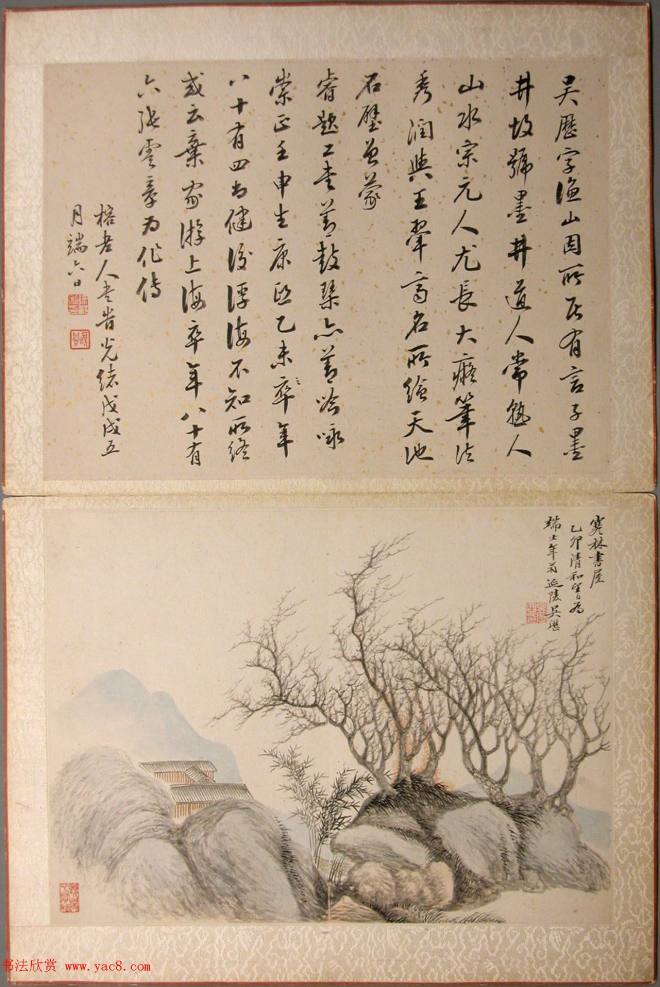 吴歷字漁山因所居有言子墨
井故號墨井道人常熟人
山水宗元人尤長大癡筆法
秀潤與王翬齊名所繪天池
石壁曾蒙
睿題工書善鼓琹亦善吟咏
崇正壬申生康熙乙未卒年
八十有四尚健後浮海不知所終
或云棄家游上海卒年八十有
六張雲章为作傳
榕老人书旹光緒戊戌五
月端六日
寒林書屋
乙卯清和望日为
瑞士年延陵吴
书法欣赏 www.yac8.com